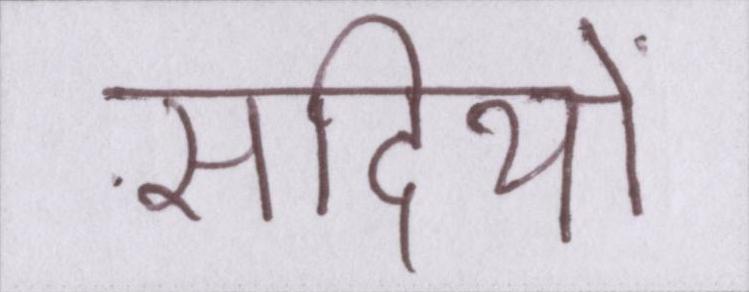 सदियों